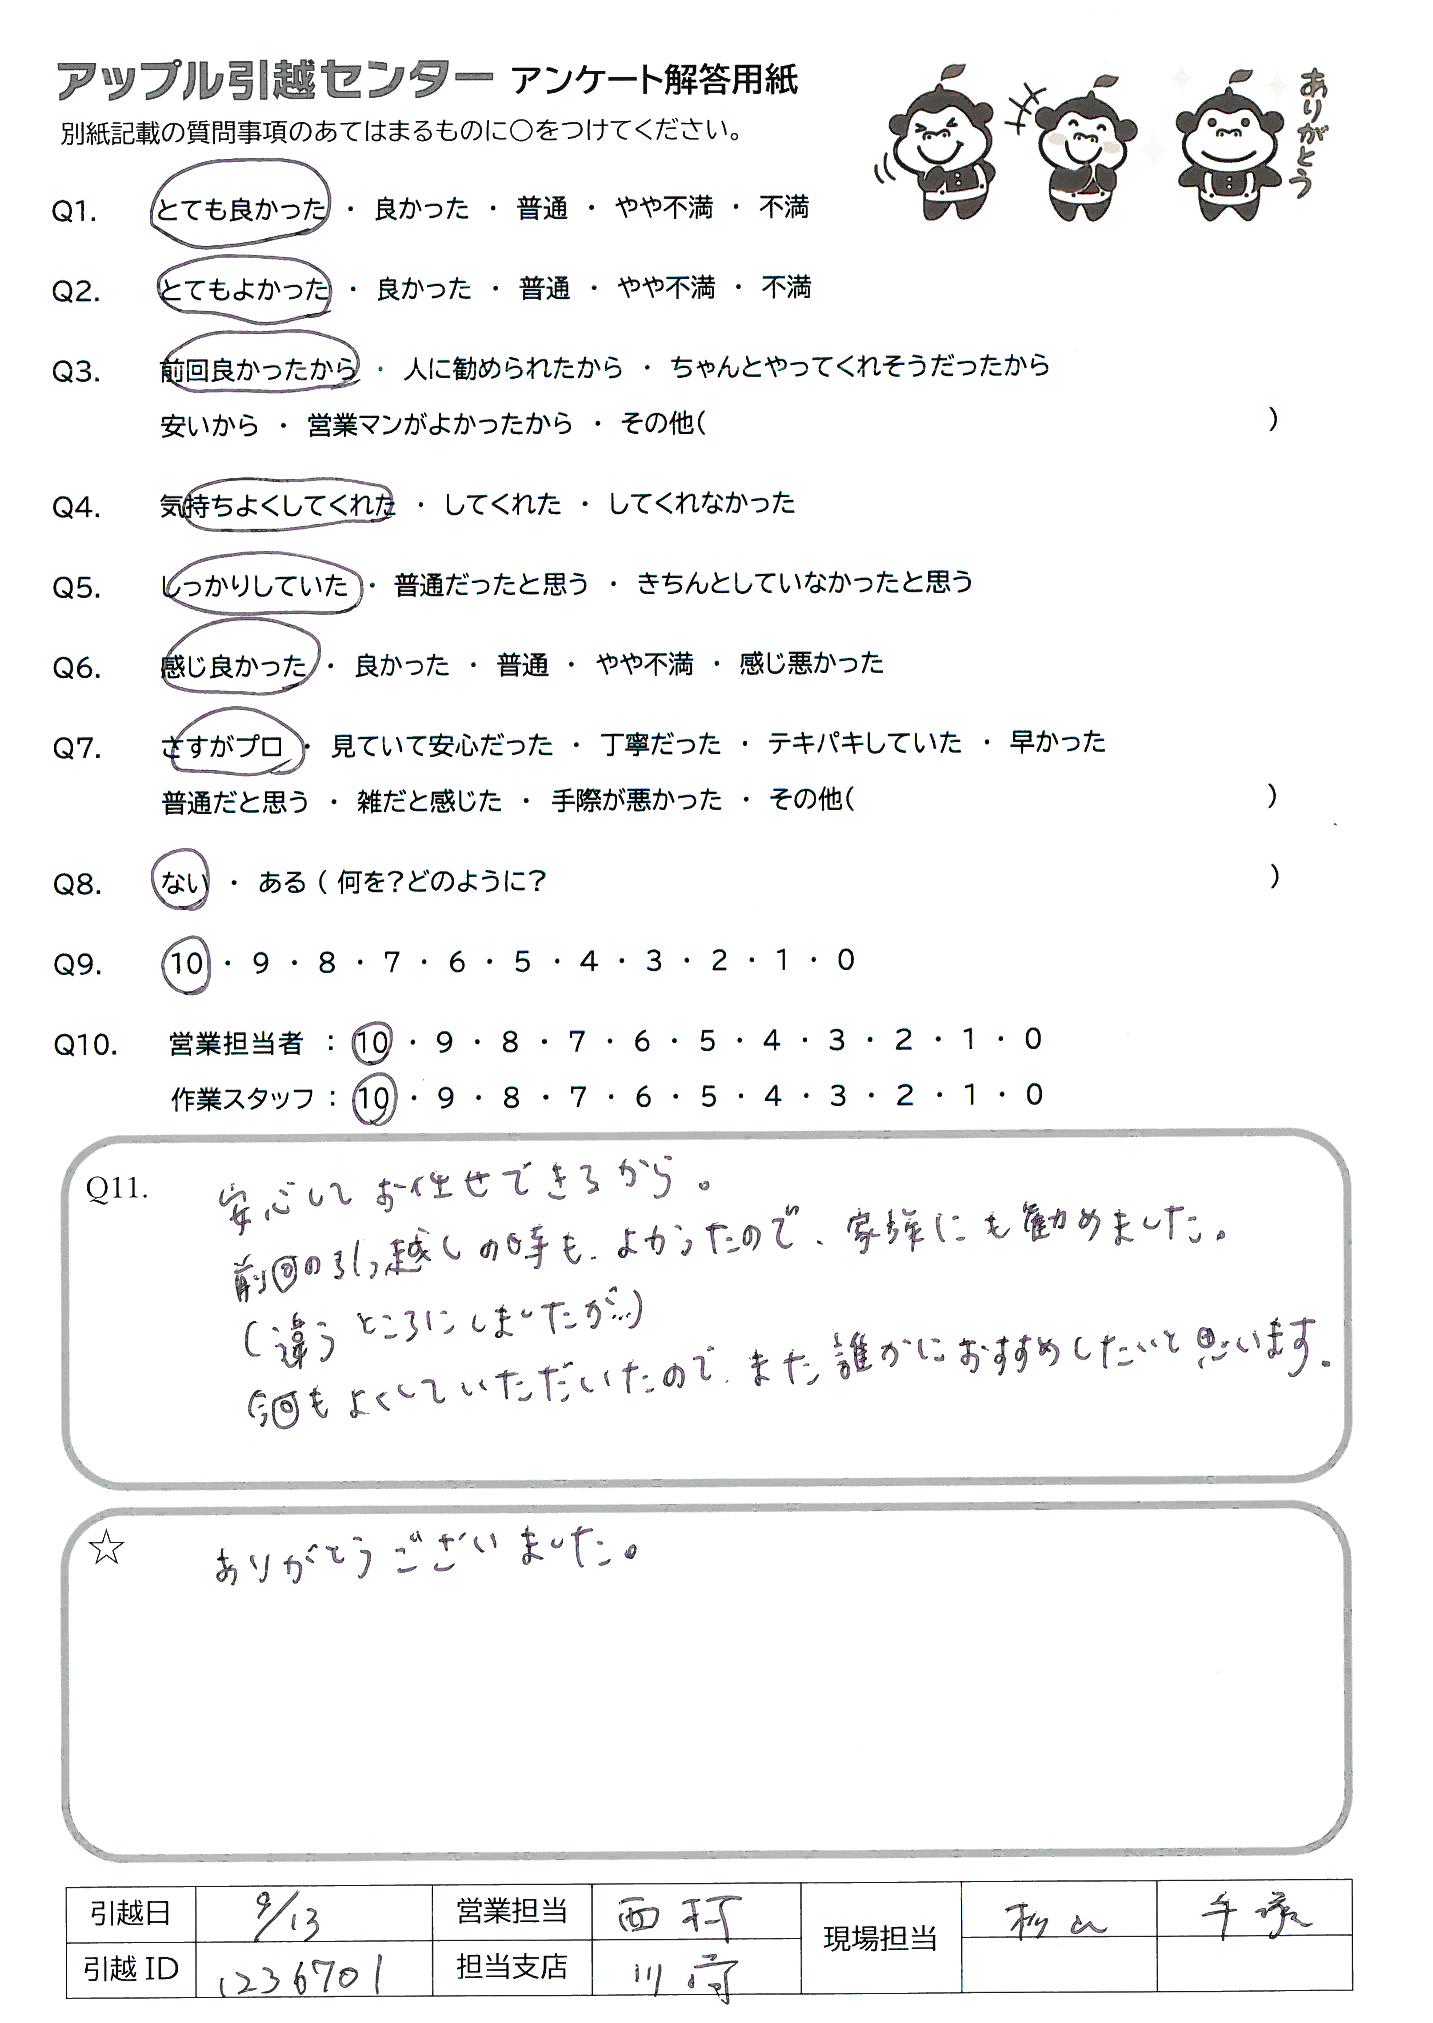 アップル引越センター アンケート解答用紙
別紙記載の質問事項のあてはまるものに○をつけてください。
ありがとう
Q1. とても良かった ・ 良かった ・ 普通 ・ やや不満 ・ 不満
Q2. とてもよかった ・ 良かった ・ 普通 ・ やや不満 ・ 不満
Q3. 前回良かったから ・ 人に勧められたから ・ ちゃんとやってくれそうだったから
安いから ・ 営業マンがよかったから ・ その他( )
Q4. 気持ちよくしてくれた ・ してくれた ・ してくれなかった
Q5. しっかりしていた ・ 普通だったと思う ・ きちんとしていなかったと思う
Q6. 感じ良かった ・ 良かった ・ 普通 ・ やや不満 ・ 感じ悪かった
Q7. さすがプロ ・ 見ていて安心だった ・ 丁寧だった ・ テキパキしていた ・ 早かった
普通だと思う ・ 雑だと感じた ・ 手際が悪かった ・ その他( )
Q8. ない ・ ある ( 何を?どのように? )
Q9. 10 ・ 9 ・ 8 ・ 7 ・ 6 ・ 5 ・ 4 ・ 3 ・ 2 ・ 1 ・ 0
Q10. 営業担当者 : 10 ・ 9 ・ 8 ・ 7 ・ 6 ・ 5 ・ 4 ・ 3 ・ 2 ・ 1 ・ 0
作業スタッフ : 10 ・ 9 ・ 8 ・ 7 ・ 6 ・ 5 ・ 4 ・ 3 ・ 2 ・ 1 ・ 0
Q11. 安心してお任せできるから。
前回の引っ越しの時も、よかったので、家族にも勧めました。
(違うところにしましたが…)
今回もよくしていただいたので、また誰かにおすすめしたいと思います。
☆ ありがとうございました。
引越日 9/13 営業担当 西村 現場担当 杉山 手塚
引越ID 1236701 担当支店 川守